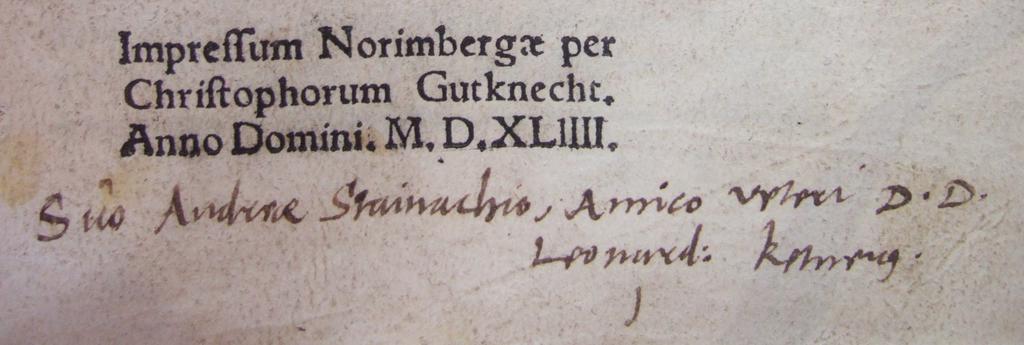 Impreſſum Norimbergæ per
Chriſtophorum Gutknecht.
Anno Domini. M. D. XLIIII.
Suo Andreæ Stainachio, Amico veteri D. D.
Leonard: